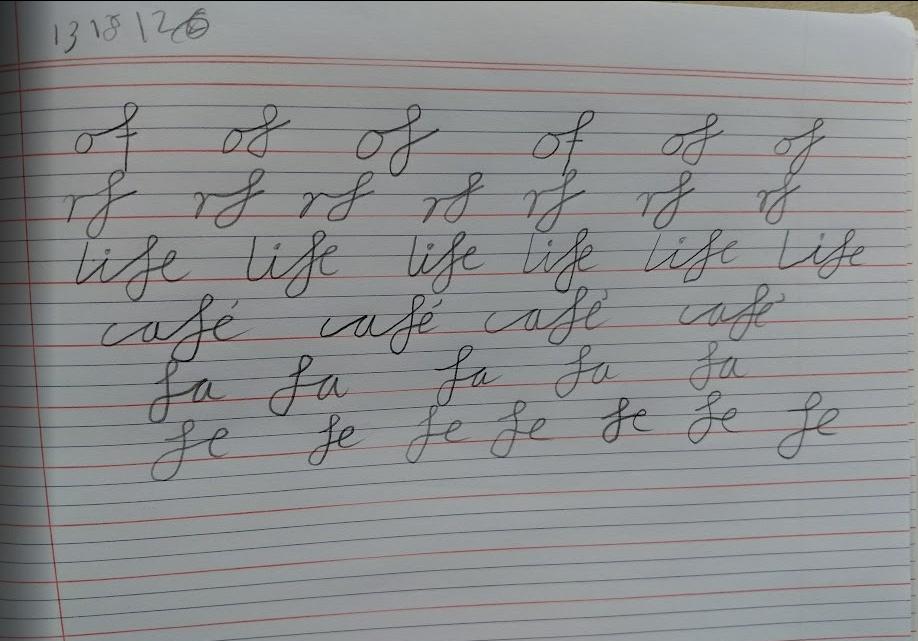 of of of of of of
rf rf rf rf rf rf rf
life life life life life life
café café café café
fa fa fa fa fa
fe fe fe fe fe fe fe